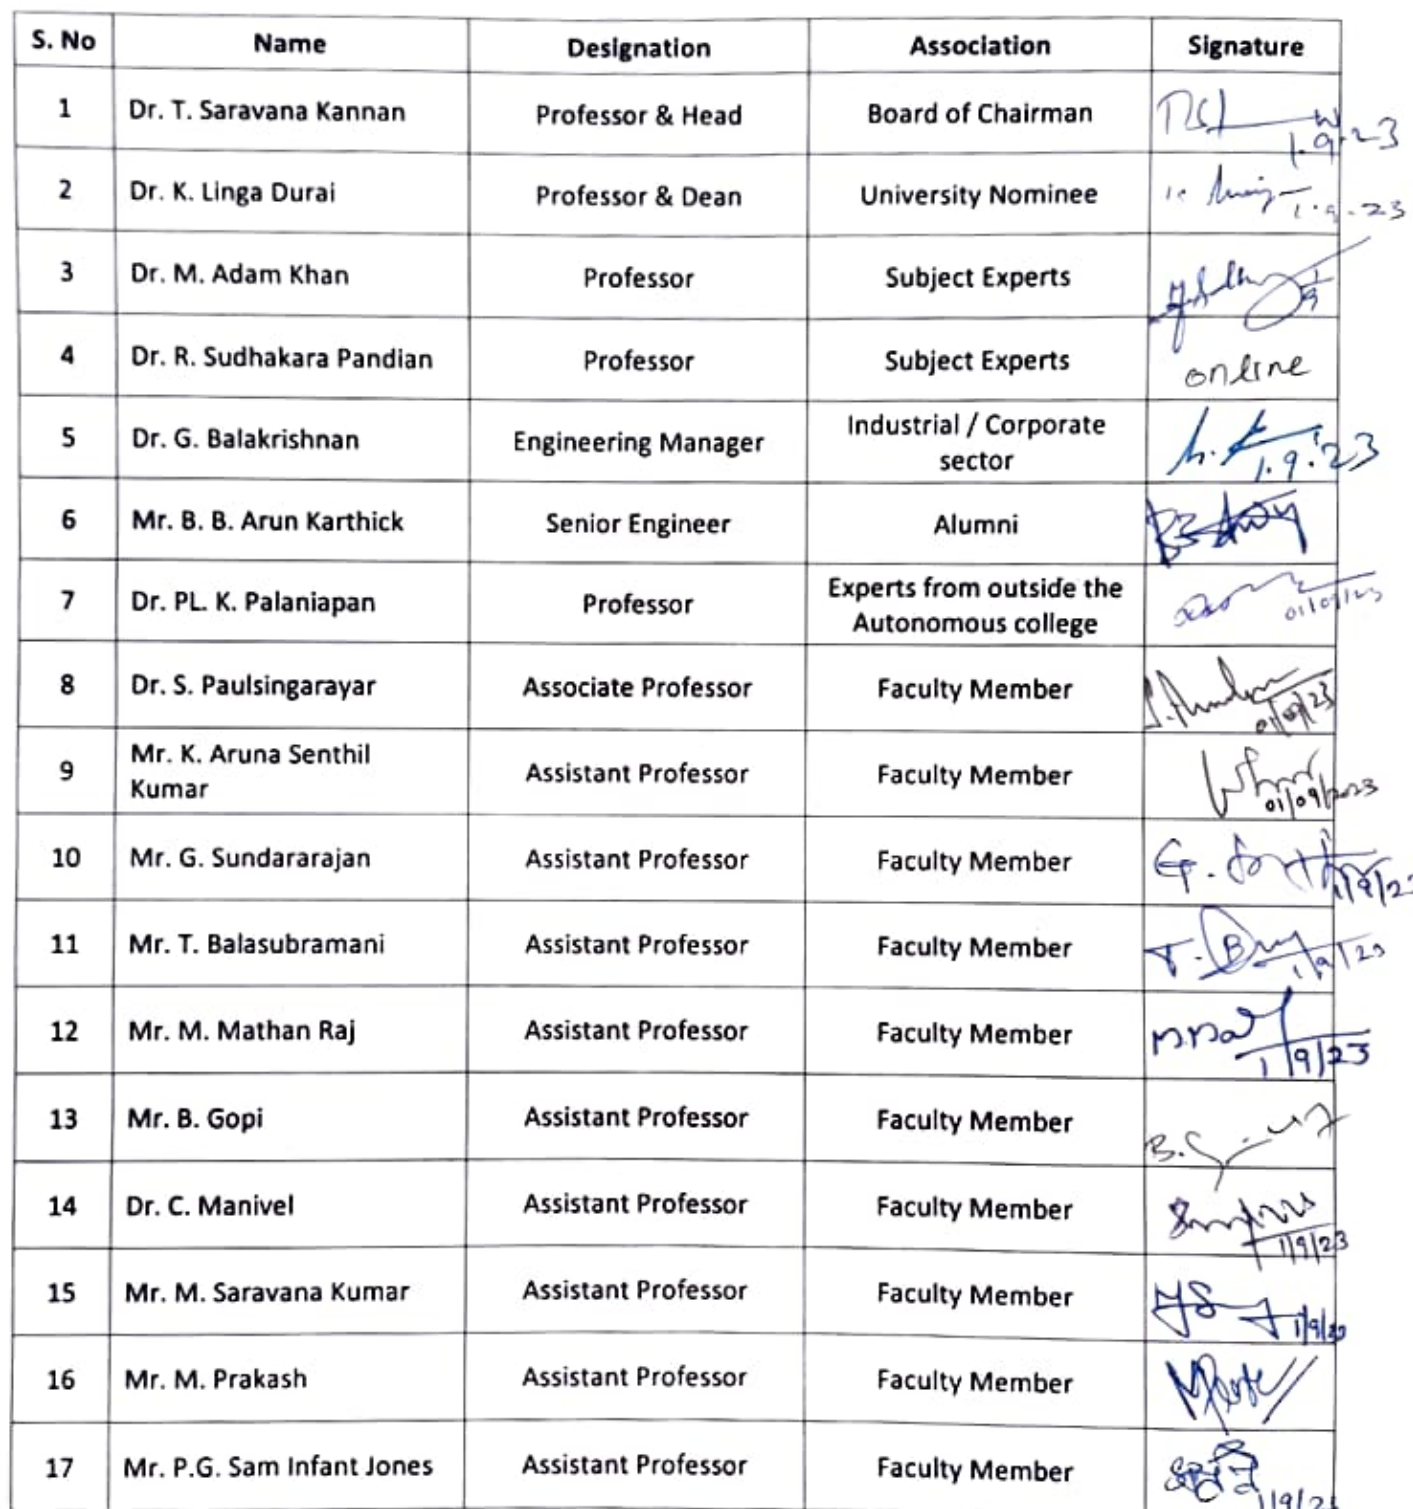 S. No Name Designation Association Signature
1 Dr. T. Saravana Kannan Professor & Head Board of Chairman
1.9.23
2 Dr. K. Linga Durai Professor & Dean University Nominee
1.9.23
3 Dr. M. Adam Khan Professor Subject Experts
4 Dr. R. Sudhakara Pandian Professor Subject Experts online
5 Dr. G. Balakrishnan Engineering Manager Industrial / Corporate
sector
1.9.'23
6 Mr. B. B. Arun Karthick Senior Engineer Alumni
7 Dr. PL. K. Palaniapan Professor Experts from outside the
Autonomous college
01/09/23
8 Dr. S. Paulsingarayar Associate Professor Faculty Member
01/09/23
9 Mr. K. Aruna Senthil
Kumar Assistant Professor Faculty Member
01/09/2023
10 Mr. G. Sundararajan Assistant Professor Faculty Member G.
1/9/23
11 Mr. T. Balasubramani Assistant Professor Faculty Member T.
1/9/23
12 Mr. M. Mathan Raj Assistant Professor Faculty Member
1/9/23
13 Mr. B. Gopi Assistant Professor Faculty Member B.
14 Dr. C. Manivel Assistant Professor Faculty Member
1/9/23
15 Mr. M. Saravana Kumar Assistant Professor Faculty Member
1/9/23
16 Mr. M. Prakash Assistant Professor Faculty Member
17 Mr. P.G. Sam Infant Jones Assistant Professor Faculty Member
1/9/23